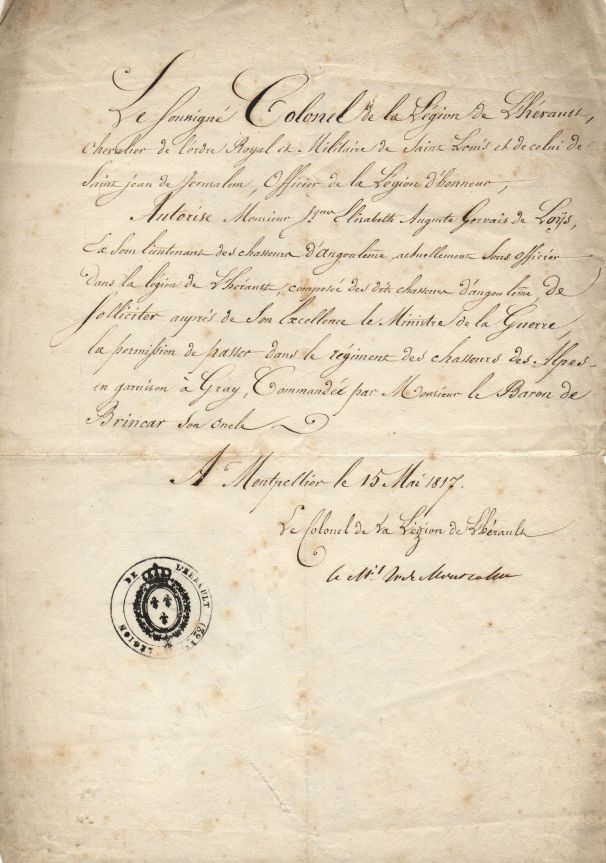 Le Soussigné Colonel de la Légion de L'hérault,
chevalier de lordre Royal et Militaire de Saint Louis et de celui de
Saint jean de Jerusalem, Officier de la Légion d'honneur,
Autorise Monsieur Elisabeth Auguste Gervais de Loÿs,
Ex Sous lieutenant des chasseurs d'angouleme, actuellement Sous officier
dans la légion de L'hérault, composée des dits chasseurs d'angoulême, de
Solliciter auprès de Son Excellence le Ministre de la Guerre,
la permission de passer dans le régiment des chasseurs des Alpes
en garnison à Gray, Commandée par Monsieur le Baron de
Brincar Son oncle
A Montpellier le 15 Mai 1817.
Le Colonel de la Légion de L'hérault
le Mis de Montcalm
LÉGION DE L'HERAULT